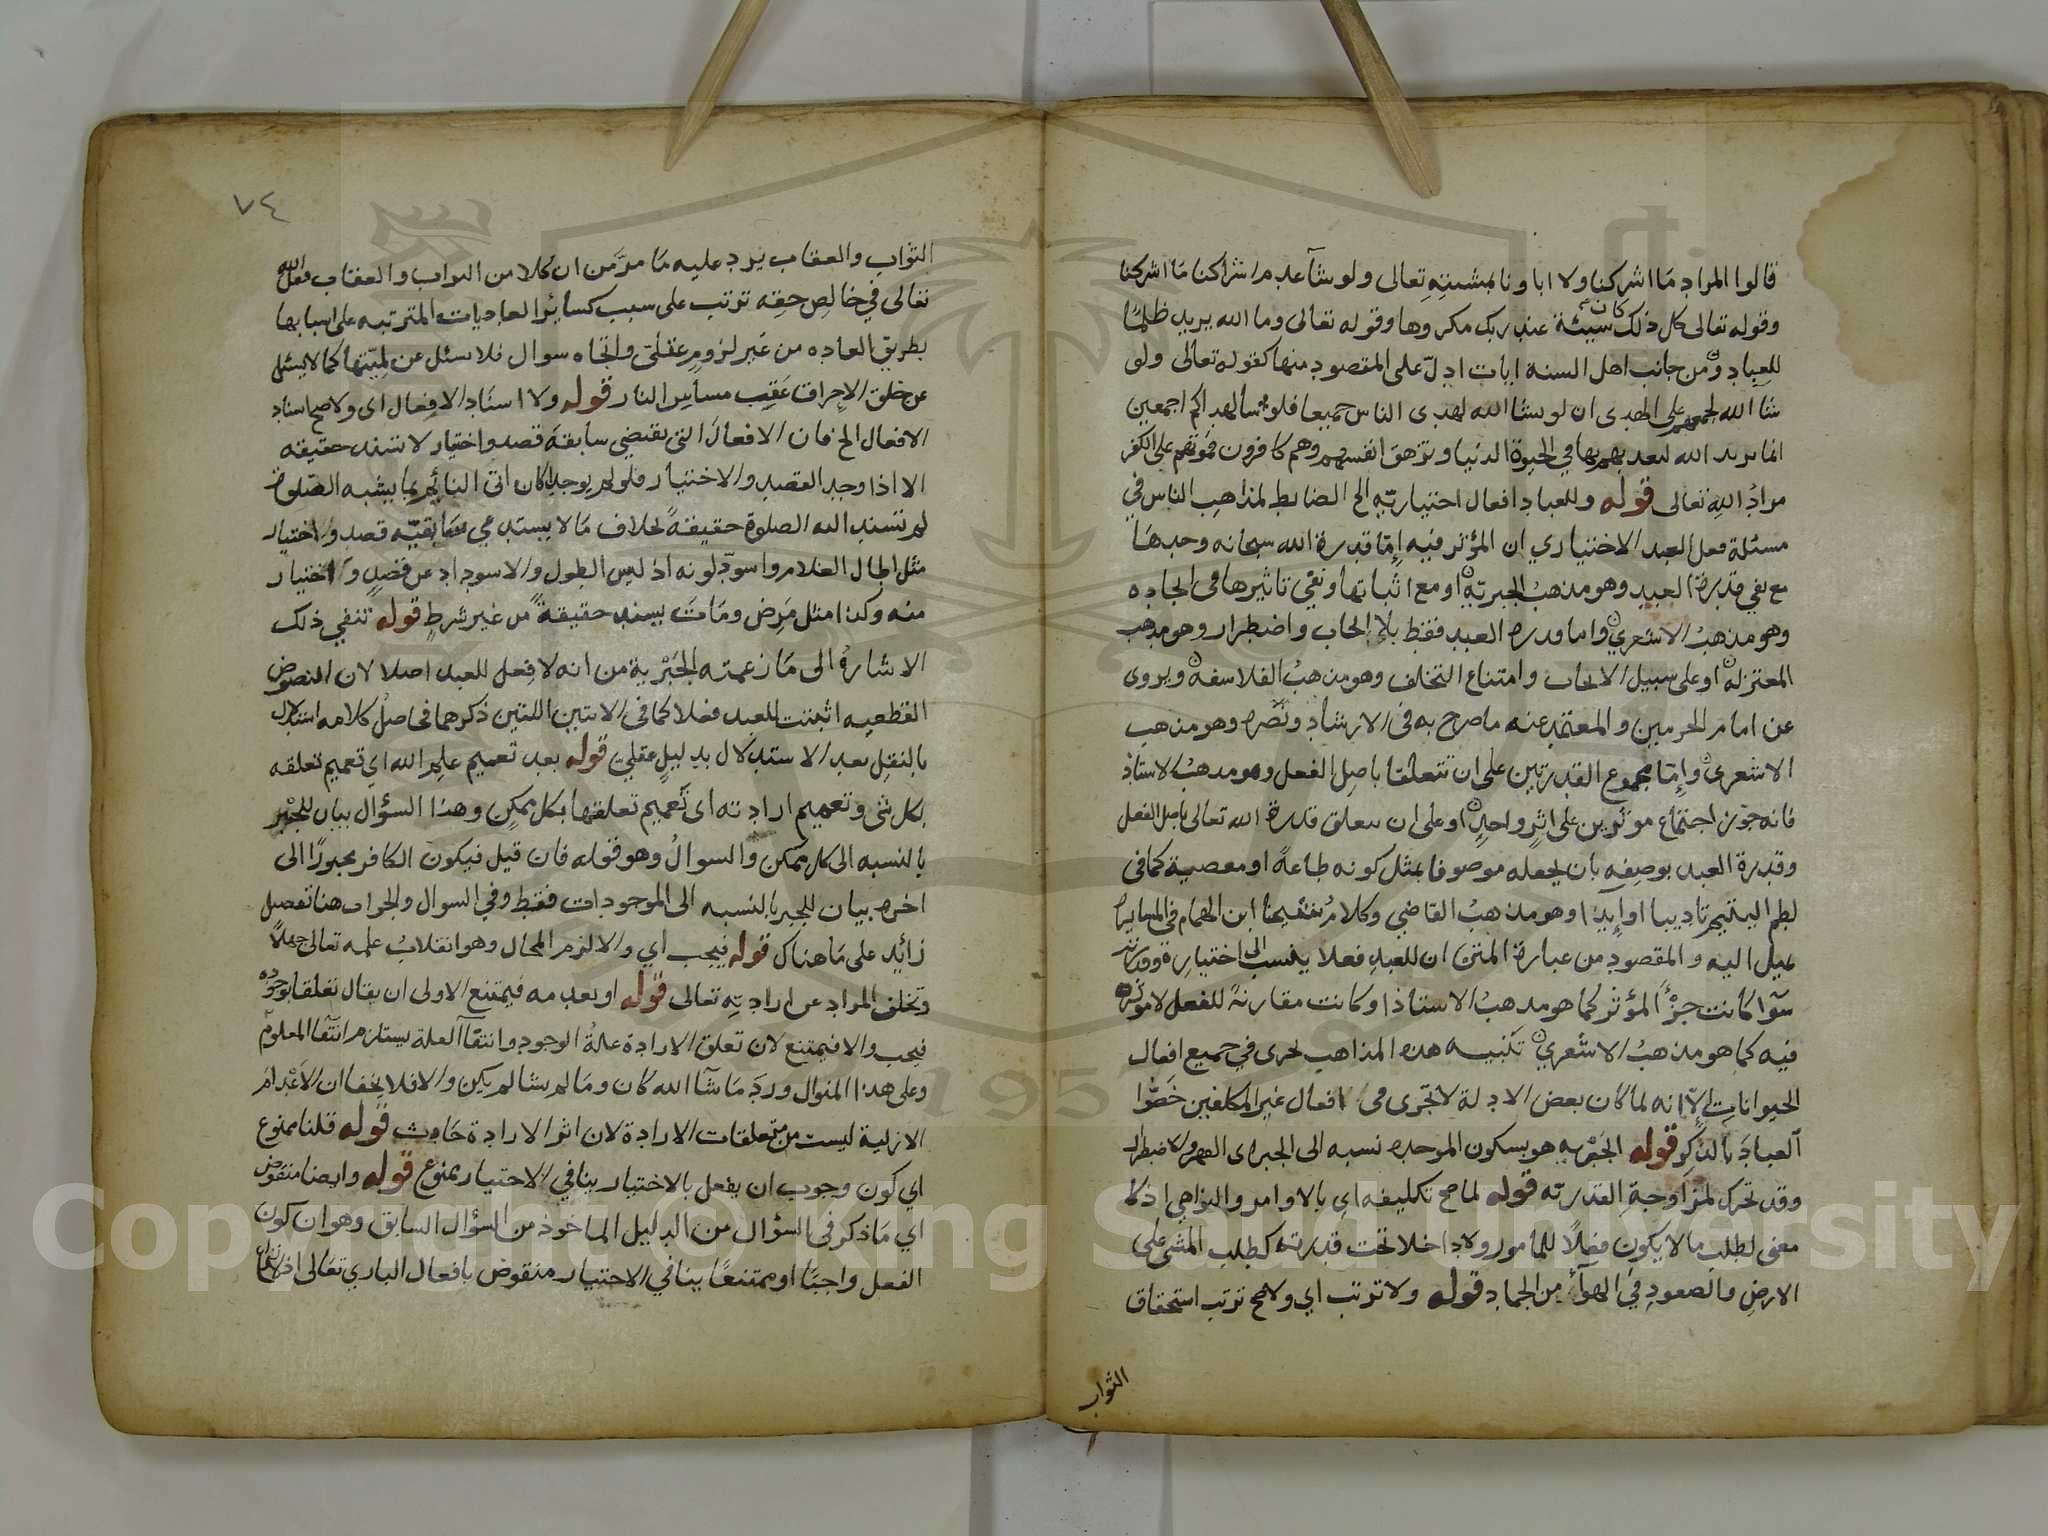 قالوا المراد ما اشركنا ولا اباونا بمشيته تعالى ولو شآ عدم اشراكنا ما اشركنا
وقوله تعالى كل ذلك كان سيئة عند ربك مكروها وقوله تعالى وما الله يريد ظلما
للعباد ومن جانب اهل السنة ايات ادل على المقصود منها كقوله تعالى ولو
شا الله لجمعهم على الهدى ان لو يشا الله لهدى الناس جميعا فلو شا لهداكم اجمعين
انما يريد الله ليعذبهم بها في الحيوة الدنيا وتزهق انفسهم وهم كافرون فموتهم على الكفر
مراد الله تعالى قوله وللعباد افعال اختيارية الخ الضابط لمذاهب الناس في
مسئلة فعل العبد الاختياري ان المؤثر فيه إما قدرة الله سبحانه وحدها
مع نفي قدرة العبد وهو مذهب الجبرية او مع اثباتها ونفي تاثيرها في ايجاده
وهو مذهب الاشعري واما قدرة العبد فقط بلا إيجاب واضطرار وهو مذهب
المعتزله او على سبيل الايجاب وامتناع التخلف وهو مذهب الفلاسفه ويروى
عن امام الحرمين والمعتمد عنه ما صرح به فى الارشاد ونصره وهو مذهب
الاشعرى وإما مجموع القدرتين على ان تتعلقا باصل الفعل وهو مذهب الاستاذ
فانه جوز اجتماع موثرين على اثر واحد او على ان تتعلق قدرة الله تعالى باصل الفعل
وقدرة العبد بوصفه بان يجعله موصوفا بمثل كونه طاعة او معصية كما فى
لطم اليتيم تاديبا او إيذا وهو مذهب القاضي وكلام ابن الهمام في المسايره
يميل اليه والمقصود من عبارة المتن ان للعبد فعلا ينسب الى اختياره وقدرته
سوآ كانت جزأ المؤثر كما هو مذهب الاستاذ او كانت مقارنة للفعل لا موثره
فيه كما هو مذهب الاشعري تنبيه هذه المذاهب تجرى في جميع افعال
الحيوانات إلا انه لما كان بعض الادلة لا تجرى في افعال غير المكلفين خصوا
العباد بالذكر قوله الجبريه هو بسكون الموحده نسبه الى الجبر اى القهر والاضطرار
وقد تحرك لمزاوجة القدريه قوله لما صح تكليفه اي بالاوامر والنواهي اذ لا
معنى لطلب ما لا يكون فعلا للمامور ولا داخلا تحت قدرته كطلب المشي على
الارض والصعود في الهوآ من الجماد قوله ولا ترتب اي ولا صح ترتب استحقاق
الثواب
٧٤
الثواب والعقاب يرد عليه ما مر من ان كلا من الثواب والعقاب فعل الله
تعالى في خالص حقه ترتب على سبب كسائر العاديات المترتبه على اسبابها
بطريق العاده من غير لزوم عقلي واتجاه سوال فلا يسئل عن لميتها كما لا يسئل
عن خلق الإحراق عقيب مساس النار قوله ولا اسناد الافعال اى ولا صح اسناد
الافعال الخ فان الافعال التى تقتضي سابقة قصد واختيار لا تسند حقيقه
الا اذا وجد القصد والاختيار فلو لم يوجدا كان اتى النائم بما يشبه الصلوة
لم تسند اليه الصلوة حقيقة بخلاف ما لا يستدعي سابقيه قصد واختيار
مثل اطال الغلام واسود لونه اذ ليس الطول والاسوداد عن قصد واختيار
منه وكذا مثل مرض ومات يسند حقيقة من غير شرط قوله تنفي ذلك
الاشارة الى ما زعمته الجبرية من انه لا فعل للعبد اصلا لان النصوص
القطعيه اثبتت للعبد فعلا كما في الايتين اللتين ذكرهما فى اصل كلامه استدلال
بالنقل بعد الاستدلال بدليل عقلي قوله بعد تعميم علم الله اي تعميم تعلقه
بكل شى وتعميم ارادته اى تعميم تعلقها بكل ممكن وهذا السؤال بيان للجبر
بالنسبه الى كل ممكن والسوال وهو قوله فان قيل فيكون الكافر مجبورا الى
اخره بيان للجبر بالنسبه الى الموجودات فقط وفي السوال والجواب هنا تفصيل
زائد على ما هناك قوله فيجب اي والا لزم المحال وهو انقلاب علمه تعالى جهلا
وتخلف المراد عن ارادته تعالى قوله او بعدمه فيمتنع الاولى ان يقال تعلقا بوجوده
فيجب والا فيمتنع لان تعلق الارادة علة الوجود وانتفآ العلة يستلزم انتفآ المعلول
وعلى هذا المنوال ورد ما شآ الله كان وما لم يشا لم يكن والا فلا يخفا ان الاعدام
الازلية ليست من متعلقات الارادة لان اثر الارادة حادث قوله قلنا ممنوع
اي كون وجوب ان يفعل بالاختيار ينافي الاختيار ممنوع قوله وايضا منقوض
اي ما ذكر فى السؤال من الدليل الماخوذ من السؤال السابق وهو ان كون
الفعل واجبا او ممتنعا ينافي الاختيار منقوض بافعال الباري تعالى اذ
Copyright © King Saud University
195